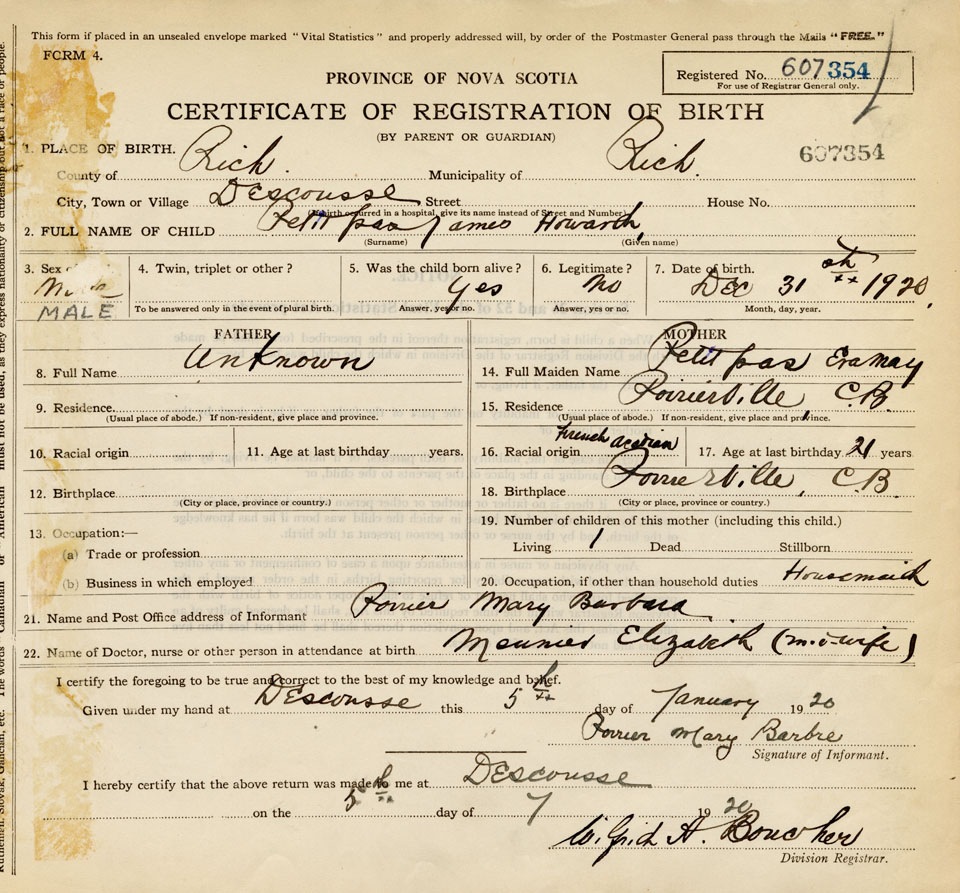 This form if placed in an unsealed envelope marked "Vital Statistics" and properly addressed will, by order of the Postmaster General pass through the Mails "FREE."
FORM 4.
Registered No. 607354
For use of Registrar General only.
PROVINCE OF NOVA SCOTIA
CERTIFICATE OF REGISTRATION OF BIRTH
(BY PARENT OR GUARDIAN)
607354
1. PLACE OF BIRTH.
County of Rich. Municipality of Rich.
City, Town or Village Descousse Street House No.
(If birth occurred in a hospital, give its name instead of Street and Number)
2. FULL NAME OF CHILD Petit pas James Howarth
(Surname) (Given name)
3. Sex Male 4. Twin, triplet or other? 5. Was the child born alive? Yes 6. Legitimate? No 7. Date of birth. Dec 31 st 1920
MALE To be answered only in the event of plural birth. Answer, yes or no. Answer, yes or no. Month, day, year.
FATHER MOTHER
8. Full Name unknown 14. Full Maiden Name Petit pas Eva May
9. Residence. 15. Residence PoirierVille, C.B.
(Usual place of abode.) If non-resident, give place and province. (Usual place of abode.) If non-resident, give place and province.
10. Racial origin 11. Age at last birthday years. 16. Racial origin French acadian 17. Age at last birthday 21 years
12. Birthplace 18. Birthplace PoirierVille, C.B.
(City or place, province or country.) (City or place, province or country.)
13. Occupation:— 19. Number of children of this mother (including this child.)
(a) Trade or profession Living 1 Dead Stillborn
(b) Business in which employed 20. Occupation, if other than household duties Housemaid
21. Name and Post Office address of Informant Poirier Mary Barbara
22. Name of Doctor, nurse or other person in attendance at birth Meunier Elizabeth (mid-wife)
I certify the foregoing to be true and correct to the best of my knowledge and belief.
Given under my hand at Descousse this 5 th day of January 1920
Poirier Mary Barbre
Signature of Informant.
I hereby certify that the above return was made to me at Descousse
on the 5 th day of 1920
Wilfrid A. Boucher
Division Registrar.